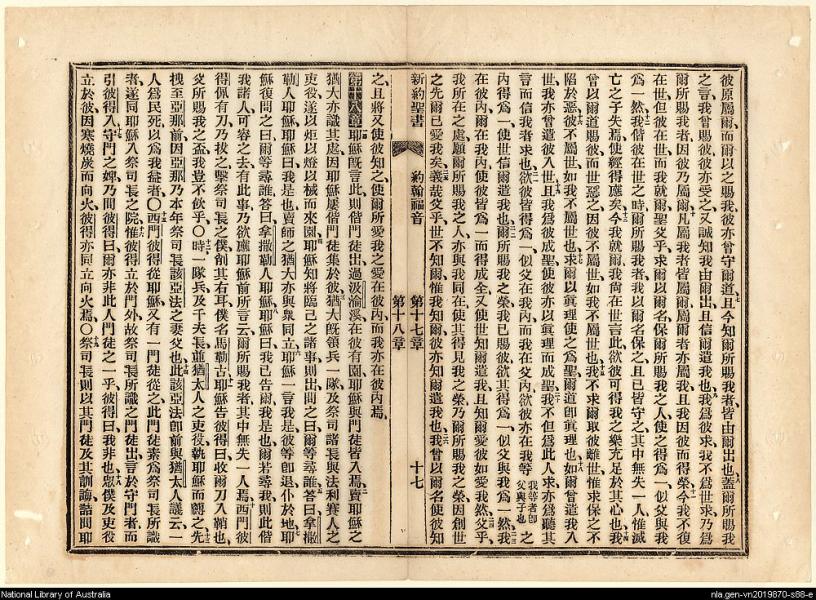 彼原屬爾而爾以之賜我彼亦曾守爾道、且今知爾所賜我者皆由爾出也、蓋爾所賜我
之言我曾賜彼、彼亦受之、又誠知我由爾出、且信爾遣我也、我爲彼求、我不爲世求、乃爲
爾所賜我者、因彼乃屬爾、凡屬我者皆屬爾、屬爾者亦屬我、且我因彼而得榮、今我不復
在世、但彼在世、而我就爾、聖父乎、求爾以爾名保爾所賜我之人、使之得爲一、似父與我
爲一然、我偕彼在世之時、爾所賜我者、我以爾名保之、且已皆守之、其中無失一人、惟滅
亡之子失焉、使經得應矣、今我就爾、我尚在世言此、欲彼可得我之樂充足於其心也、我
曾以爾道賜彼、而世惡之、因彼不屬世、如我不屬世也、我不求爾取彼離世、惟求保之不
陷於惡、彼不屬世、如我不屬世也、求爾以眞理使之爲聖、爾道卽眞理也、如爾曾遣我入
世、我亦曾遣彼入世、且我爲彼成聖、使彼亦以眞理而成聖、我不但爲此人求、亦爲聽其
言而信我者求也、欲彼皆得爲一、似父在我內、而我在父內、欲彼亦在我等我等者卽父與子也之
內得爲一、使世信爾遣我也、爾所賜我之榮、我已賜彼、欲其得爲一、似父與我爲一然、我
在彼內、爾在我內、使彼皆爲一而得成全、又使世知爾遣我、且知爾愛彼如愛我然、父乎、
我所在之處、願爾所賜我之人、亦與我同在、使其得見我之榮、乃爾所賜我之榮、因創世
之先爾已愛我矣、義哉父乎、世不知爾、惟我知爾、彼亦知爾遣我也、我曾以爾名使彼知
新約聖書 約翰福音 第十七章 第十八章 十七
之、且將又使彼知之、使爾所愛我之愛在彼內、而我亦在彼內焉、
第十八章 耶穌旣言此、則偕門徒出、過汲淪溪、在彼有園、耶穌與門徒皆入焉、賣耶穌之
猶大亦識其處、因耶穌屢偕門徒集於彼、猶大旣領兵一隊、及祭司諸長與法利賽人之
吏役、遂以炬以燈以械而來園、耶穌知將臨己之諸事、則出問之曰、爾等尋誰、答曰、拿撒
勒人耶穌、耶穌曰、我是也、賣師之猶大亦與衆同立、耶穌一言我是、彼等卽退仆於地、耶
穌復問之曰、爾等尋誰、答曰、拿撒勒人耶穌、耶穌曰、我已告爾、我是也、爾若尋我、則此偕
我諸人可容之去、有此事、乃欲應耶穌前所言云、爾所賜我者、其中無失一人焉、西門彼
得佩有刀、乃拔之、擊祭司長之僕、創其右耳、僕名馬勒古、耶穌告彼得曰、收爾刀入鞘也、
父所賜我之盃、我豈不飲乎、〇時一隊兵及千夫長、並猶太人之吏役、執耶穌而縛之、先
拽至亞那前、因亞那乃本年祭司長該亞法之妻父也、此該亞法卽前與猶太人議云、一
人爲民死、以爲我益者、〇西門彼得從耶穌、又有一門徒從之、此門徒素爲祭司長所識
者、遂同耶穌入祭司長之院、惟彼得立於門外、故祭司長所識之門徒出、言於守門者、而
引彼得入、守門之婢乃問彼得曰、爾亦非此人門徒之一乎、彼得曰、我非也、衆僕及吏役
立於彼、因寒燒炭而向火、彼得亦同立向火焉、〇祭司長則以其門徒及其訓誨詰問耶
National Library of Australia
nla.gen-vn2019870-s88-e